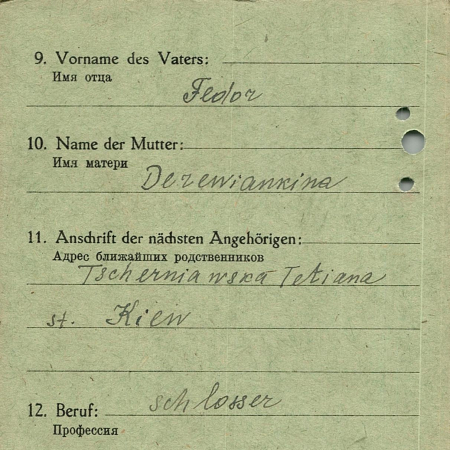 9. Vorname des Vaters:
Имя отца
Fedor
10. Name der Mutter:
Имя матери
Derewiankina
11. Anschrift der nächsten Angehörigen:
Адрес ближайших родственников
Tscherniawska Tetiana
st. Kiew
12. Beruf: schlosser
Профессия